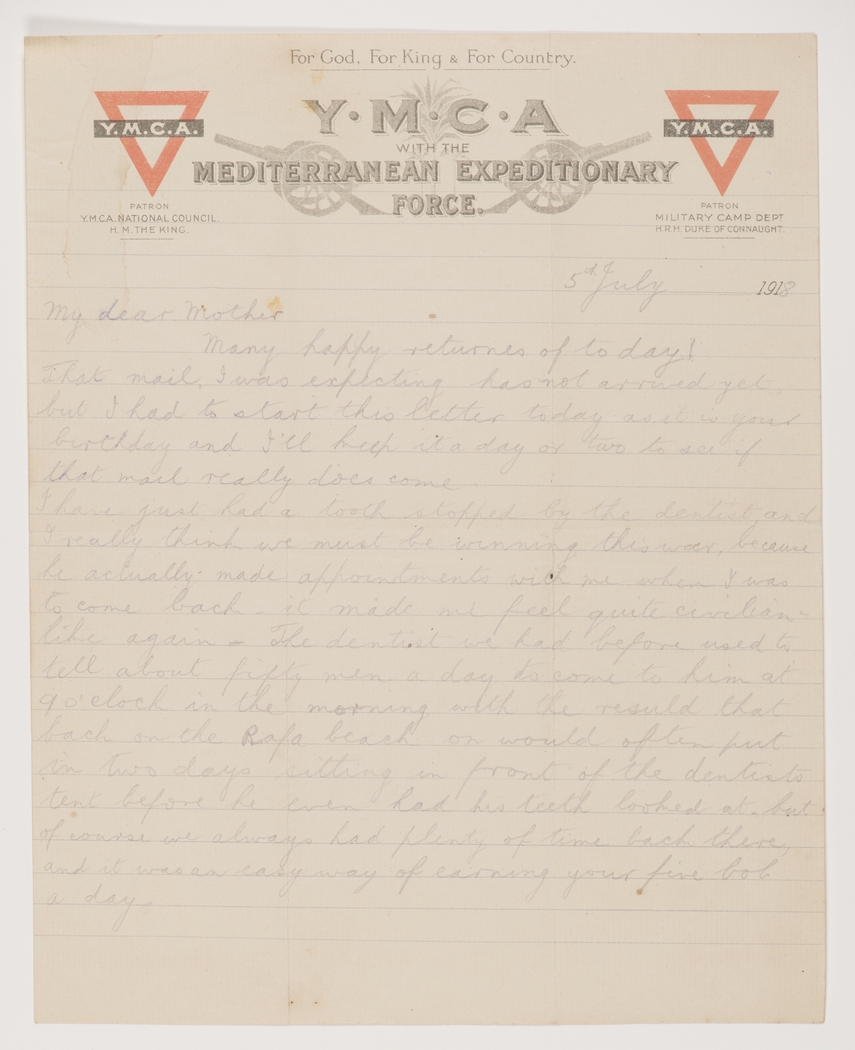 For God, For King & For Country.
Y·M·C·A
WITH THE
MEDITERRANEAN EXPEDITIONARY
FORCE.
Y.M.C.A.
PATRON
Y.M.C.A. NATIONAL COUNCIL.
H.M. THE KING.
Y.M.C.A.
PATRON
MILITARY CAMP DEPT
H.R.H. DUKE OF CONNAUGHT.
5th July 1918
My dear Mother
Many happy returnes of to day!
That mail, I was expecting has not arrived yet,
but I had to start this letter today as it is your
birthday and I'll keep it a day or two to see if
that mail really does come.
I have just had a tooth stopped by the dentist and
I really think we must be winning this war, because
he actually made appointments with me when I was
to come back - it made me feel quite civilian-
like again - The dentist we had before used to
tell about fifty men a day to come to him at
9 o'clock in the morning with the resuld that
back on the Rafa beach on would often put
in two days sitting in front of the dentists
tent before he even had his teeth looked at. but
of course we always had plenty of time back there,
and it was an easy way of earning your five bob
a day.